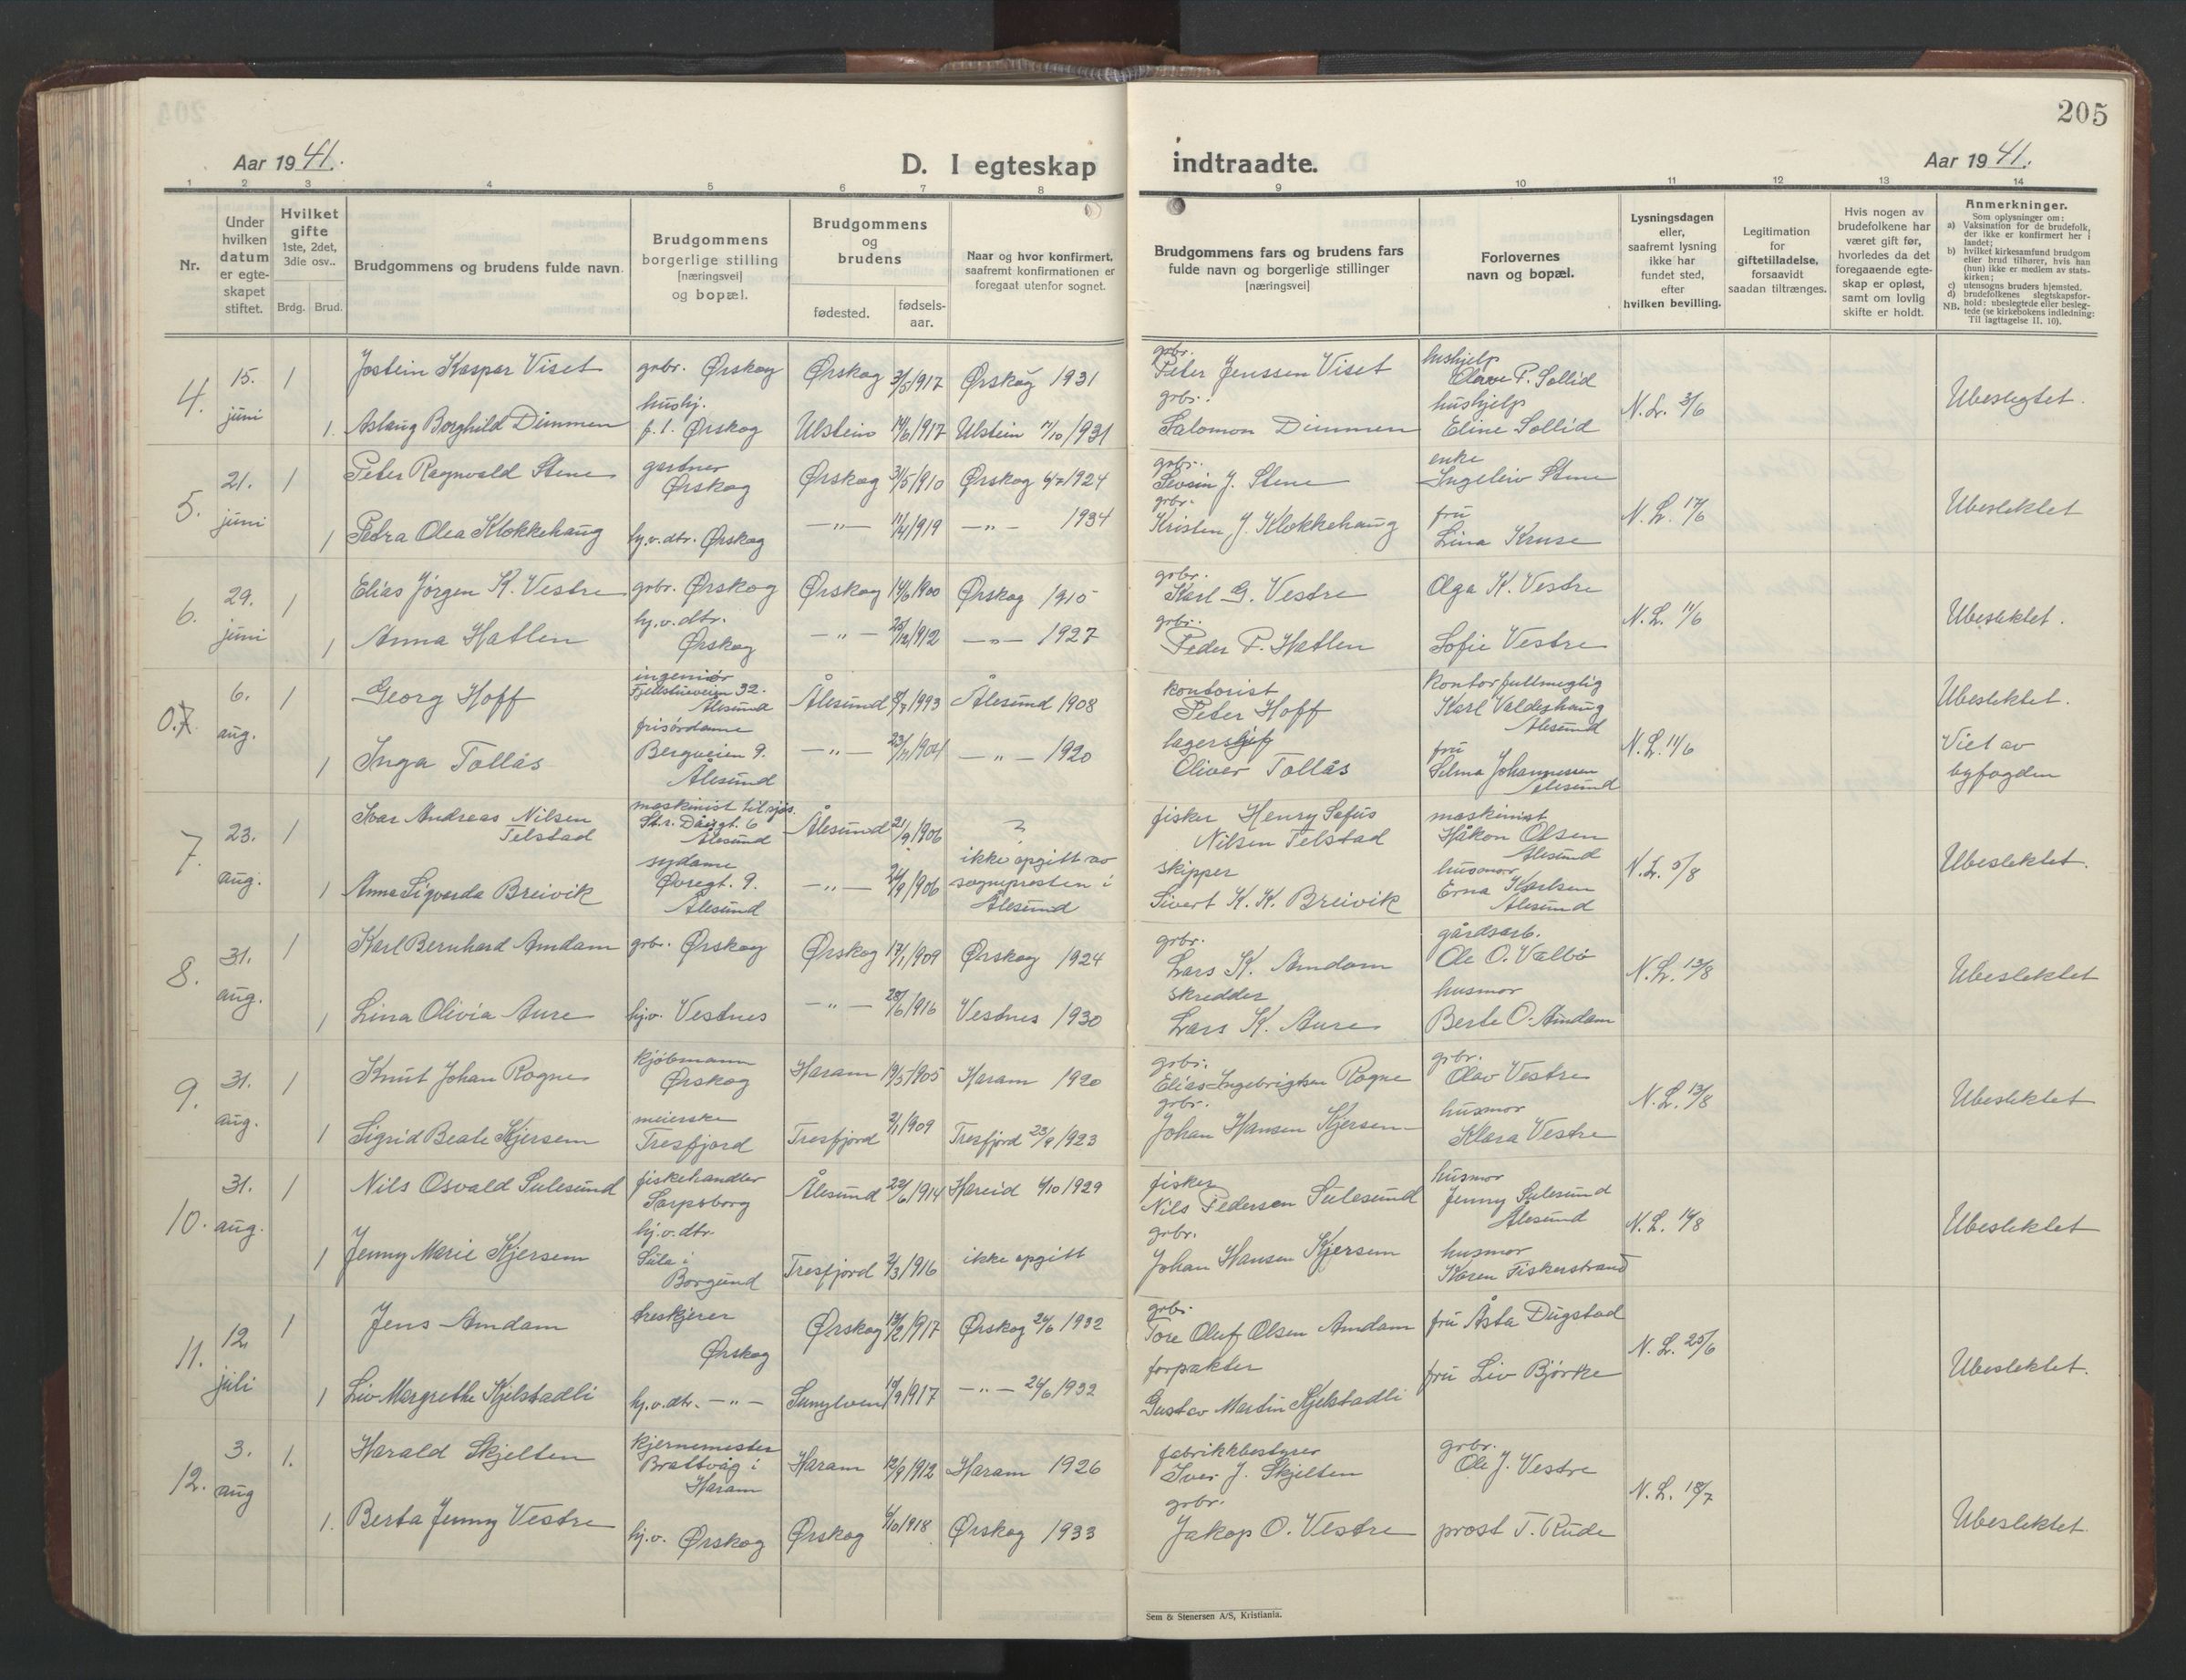 205
Aar 1941.
D. I egteskap
indtraadte.
Aar 1941.
1 2 3 4 5 6 7 8 9 10 11 12 13 14
Nr.
Under
hvilken
datum
er egte-
skapet
stiftet.
Hvilket
gifte
1ste, 2det,
3die osv..
Brdg. Brud.
Brudgommens og brudens fulde navn.
Brudgommens
borgerlige stilling
[næringsvei]
og bopæl.
Brudgommens
og
brudens
fødested.
fødsels-
aar.
Naar og hvor konfirmert,
saafremt konfirmationen er
foregaat utenfor sognet.
Brudgommens fars og brudens fars
fulde navn og borgerlige stillinger
[næringsvei]
Forlovernes
navn og bopæl.
Lysningsdagen
eller,
saafremt lysning
ikke har
fundet sted,
efter
hvilken bevilling.
Legitimation
for
giftetilladelse,
forsaavidt
saadan tiltrænges.
Hvis nogen av
brudefolkene har
været gift før,
hvorledes da det
foregaaende egte-
skap er opløst,
samt om lovlig
skifte er holdt.
Anmerkninger.
Som oplysninger om:
a) Vaksination for de brudefolk,
der ikke er konfirmert her i
landet;
b) hvilket kirkesamfund brudgom
eller brud tilhører, hvis han
(hun) ikke er medlem av stats-
kirken;
c) utensogns bruders hjemsted.
d) brudefolkenes slegtskapsfor-
hold: ubeslegtede eller besleg-
NB. tede (se kirkebokens indledning:
Til iagttagelse II. 10).
4. 15. juni 1 Jostein Kaspar Viset grbr. Ørskog Ørskog 3/5 1917 Ørskog 1931 grbr. Peter Jenssen Viset hushjelp P. Sollid N.L. 3/6 Ubeslegtet.
1. Aslaug Borghild Dimmen hushj. f.t. Ørskog Ulstein 1917 Ulstein 1931 grbr. Salomon Dimmen hushjelp Eline Sollid
5. 21. juni 1 Peter Ragnvald Stene gartner Ørskog Ørskog 31/5 1910 Ørskog 1924 grbr. J. Stene enke Ingeleiv Stene N.L. 17/6 Ubeslektet
1 Petra Olea Klokkehaug hj.v.dtr. Ørskog —"— 1919 —"— 1934 grbr. Kristen J. Klokkehaug fru Lina Kruse
6. 29. juni 1 Elias Jørgen K. Vestre grbr. Ørskog Ørskog 14/6 1900 Ørskog 1915 grbr. Karl G. Vestre Olga K. Vestre N.L. 11/6 Ubeslektet.
1 Anna Hatlen hj.v.dtr. Ørskog —"— 1912 —"— 1927 grbr. Peder P. Hatlen Sofie Vestre
0.7 6. aug. 1 Georg Hoff ingeniør Fjellstueveien 32. Ålesund Ålesund 1893 Ålesund 1908 kontorist Peter Hoff kontorfullmegtig Karl Valdeshaug Ålesund N.L. 11/6 Ubeslektet.
1 Inga Tollås frisørdame Bergveien 9. Ålesund —"— 1904 —"— 1920 lagersjef Oliver Tollås fru Selma Johannessen Ålesund Viet av byfogden
7. 23. aug. 1 Ivar Andreas Nilsen Telstad maskinist til sjøs. Ålesund Ålesund 21/9 1906 ? fisker Henry Sefus Nilsen Telstad maskinist Håkon Olsen Ålesund N.L. 5/8 Ubeslektet.
1 Anna Sigvarda Breivik sydame Øvregt. 9. Ålesund —"— 1906 ikke opgitt av sogneprosten i Ålesund skipper Sivert K. K. Breivik husmor Erna Karlsen Ålesund
8. 31. aug. 1 Karl Bernhard Amdam grbr. Ørskog Ørskog 17/1 1909 Ørskog 1924 grbr. Lars K. Amdam gårdsarb. Ole O. Valbø N.L. 13/8 Ubeslektet
1 Lina Olivia Aure hj.v. Vestnes —"— 1916 Vestnes 1930 skredder Lars K. Aure husmor Berte O. Amdam
9. 31. aug. 1 Knut Johan Rogne kjøbmann Ørskog Haram 19/5 1905 Haram 1920 grbr. Elias Ingebrigtsen Rogne grbr. Olav Vestre N.L. 13/8 Ubeslektet
1 Sigrid Beate Kjersem meierske Tresfjord Tresfjord 2/1 1909 Tresfjord 23/9 1923 grbr. Johan Hansen Kjersem husmor Klara Vestre
10. 31. aug. 1 Nils Osvald Sulesund fiskehandler Sarpsborg Ålesund 22/6 1914 Hareid 4/10 1929 fisker Nils Pedersen Sulesund husmor Jenny Sulesund Ålesund N.L. 14/8 Ubeslektet
1 Jenny Marie Kjersem hj.v.dtr. Sula i Borgund Tresfjord 2/3 1916 ikke opgitt grbr. Johan Hansen Kjersem husmor Karen Fiskerstrand
11. 12. juli 1 Jens Amdam treskjerer Ørskog Ørskog 13/2 1917 Ørskog 26/6 1932 grbr. Tore Oluf Olsen Amdam fru Åsta Dugstad N.L. 25/6 Ubeslektet.
1 Liv Margrethe Kjelstadli hj.v.dtr. —"— Sunylven 1917 —"— 26/6 1932 forpakter Gustav Martin Kjelstadli fru Liv Bjørke
12. 3. aug 1. Harald Skjelten kjernemester Brattvåg i Haram Haram 12/9 1912 Haram 1926 fabrikkbestyrer Iver J. Skjelten grbr. Ole J. Vestre N.L. 18/7 Ubeslektet.
1. Berta Jenny Vestre hj.v. Ørskog Ørskog 6/10 1918 Ørskog 1933 grbr. Jakop O. Vestre prost T. Rude
Sem & Stenersen A/S, Kristiania.